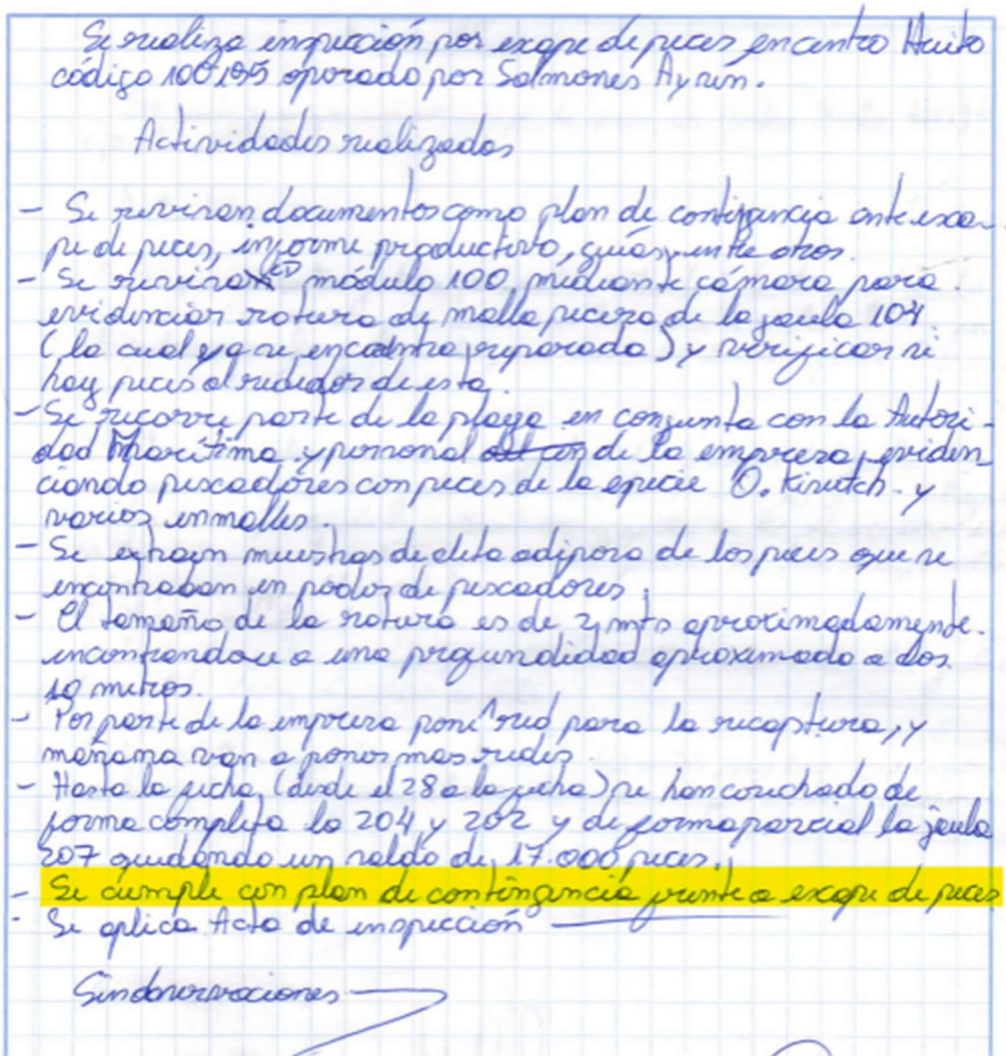 Se realiza inspección por escape de peces en centro Huito
código 100195 operado por Salmones Aysén.
Actividades realizadas
- Se revisan documentos como plan de contingencia ante esca-
pe de peces, informe productivo, guías, entre otros.
- Se revisa módulo 100, mediante cámara para
evidenciar rotura de malla pecera de la jaula 104
(la cual ya se encuentra reparada) y verificar si
hay peces alrededor de esta.
- Se recorre parte de la playa en conjunto con la Autori-
dad Marítima y personal de la empresa, eviden
ciando pescadores con peces de la especie O. Kisutch. y
varios enmalles.
- Se extraen muestras de aleta adiposa de los peces que se
encontraban en poder de pescadores.
- El tamaño de la rotura es de 2 mts aproximadamente.
encontrandose a una profundidad aproximada a los
10 metros.
- Por parte de la empresa red para la recaptura, y
mañana van a poner mas redes.
- Hasta la fecha, (desde el 28 a la fecha) se han cosechado de
forma completa la 204 y 202 y de forma parcial la jaula
207 quedando un saldo de 17.000 peces.
- Se cumple con plan de contingencia frente a escape de peces
- Se aplica Acta de inspección
Sin observaciones